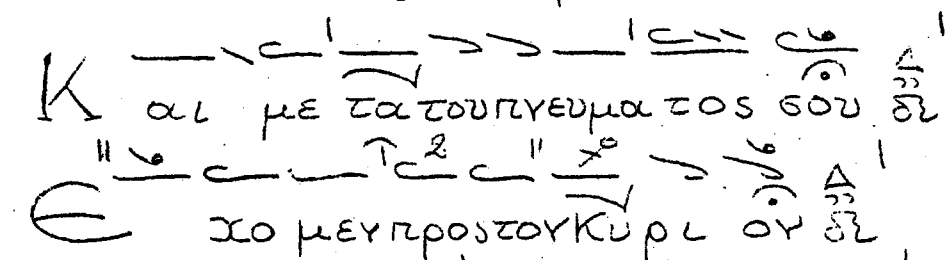 Και με τα του πνευμα τος σου
Εχο μεν προς τον Κυρι ον